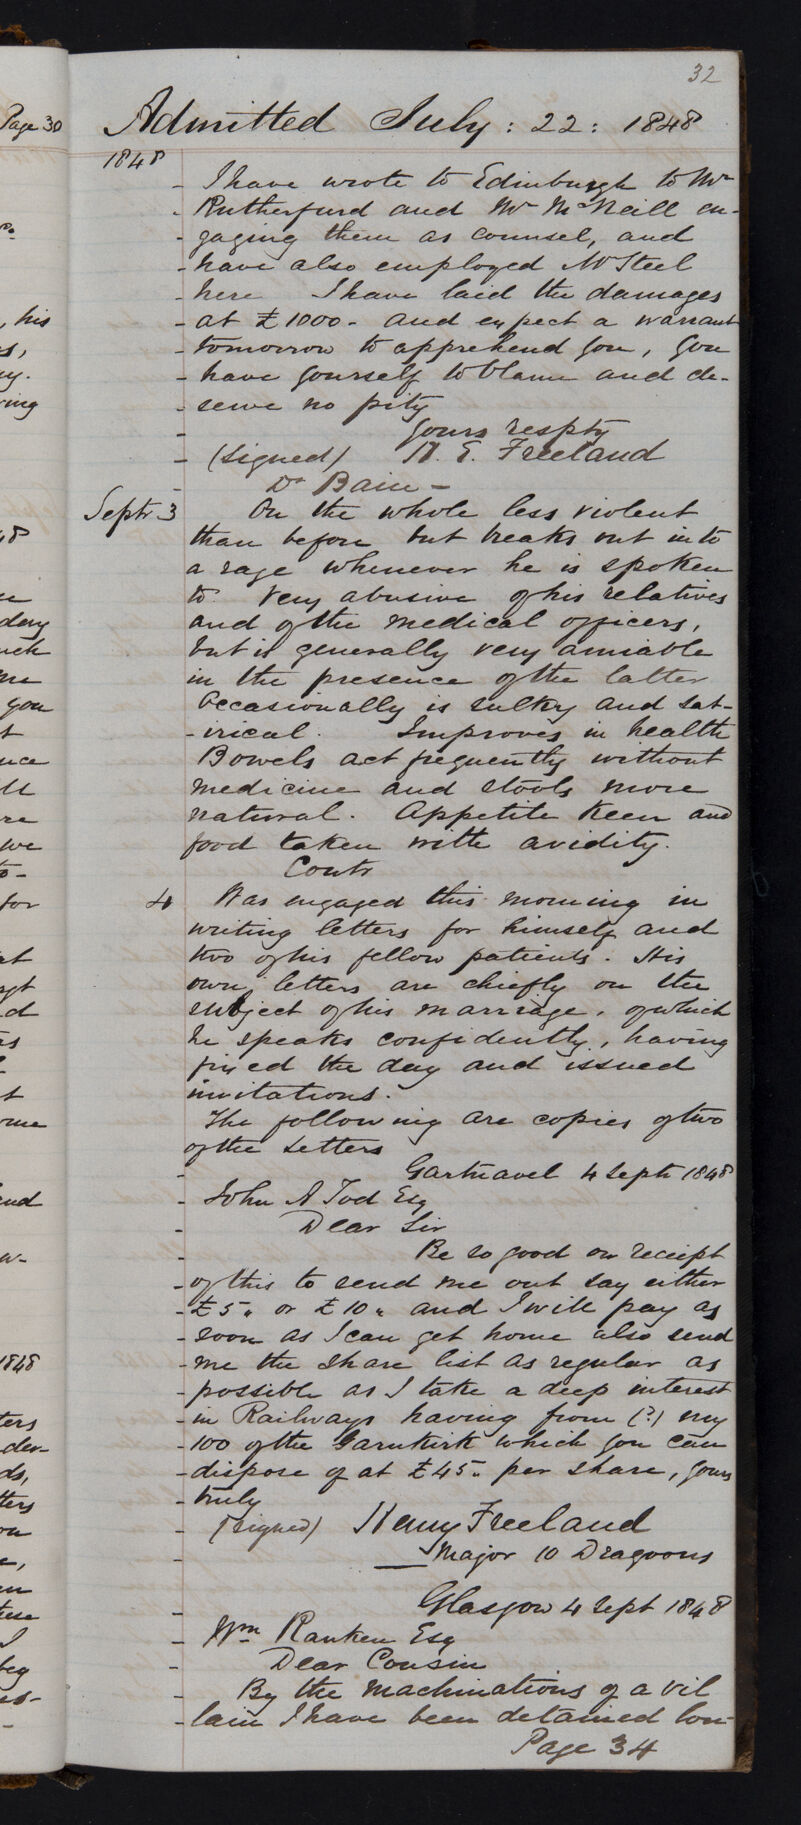 32
Page 30
Admitted July : 22 : 1848
1848
- I have wrote to Edinburgh to Mr
- Rutherfurd and Mr McNeill en-
- gaging them as counsel, and
- have also employed Mr Steel
- here I have laid the damages
- at £1000 - and expect a warrant
- tomorrow to apprehend you, you
- have yourself to blame and de-
- serve no pity
- yours respty
- (signed) H. E. Freeland
- Dr Bain -
Septr 3 On the whole less violent
than before but breaks out into
a rage whenever he is spoken
to. Very abusive of his relatives
and of the medical officers,
but is generally very amiable
in the presence of the latter
Occasionally is sulky and sat-
-irical. Improves in health
Bowels act frequently without
medicine and stools more
natural. Appetite keen and
food taken with avidity.
Contr
4 Was engaged this morning in
writing letters for himself and
two of his fellow patients. His
own letters are chiefly on the
subject of his marriage, of which
he speaks confidently, having
fixed the day and issued
invitations.
The following are copies of two
of the letters
- Gartnavel 4 Septr 1848
- John A Tod Esq
- Dear Sir
- Be so good on receipt
- of this to send me out say either
- £5 „ or £10 „ and I will pay as
- soon as I can get home also send
- me the share list as regular as
- possible as I take a deep interest
- in Railways having from (?) my
- 100 of the Garnkirk which you can
- dispose of at £45 „ per share, yours
- truly
- (signed) Henry Freeland
- Major 10 Dragoons
- Glasgow 4 Sept 1848
- Wm Ranken Esq
- Dear Cousin
- By the machinations of a vil
- lain I have been detained lon-
Page 34